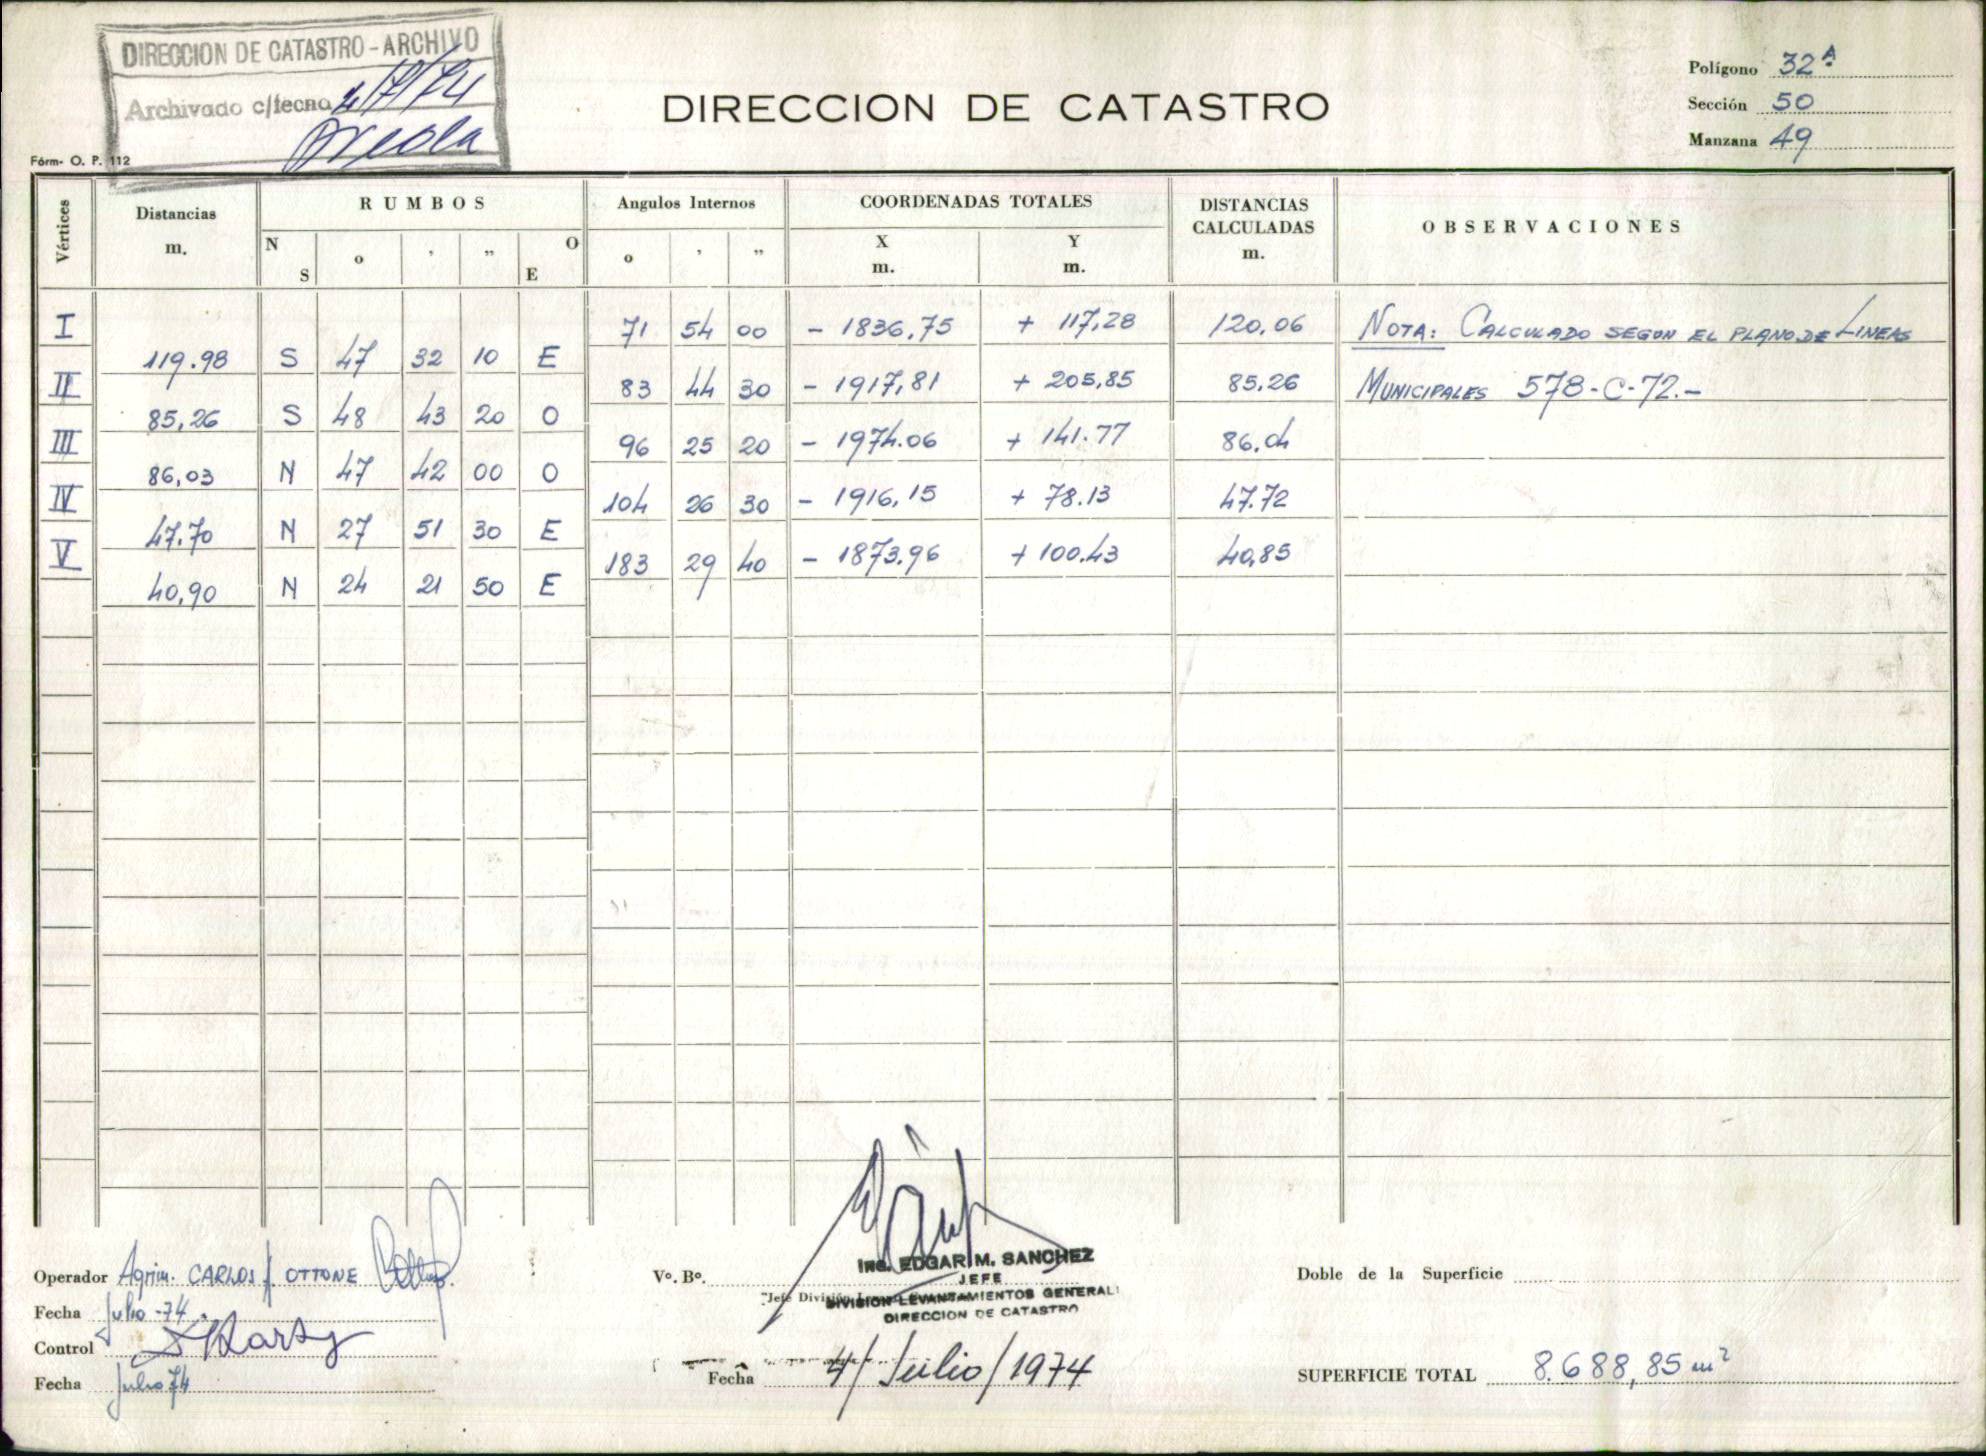 DIRECCION DE CATASTRO - ARCHIVO
Archivado c/fecha 4/7/74
Fórm- O. P. 112
DIRECCION DE CATASTRO
Polígono 32ª
Sección 50
Manzana 49
Vértices Distancias m. RUMBOS N S o ' " O E Angulos Internos o ' " COORDENADAS TOTALES X m. Y m. DISTANCIAS CALCULADAS m. OBSERVACIONES
I 71 54 00 - 1836,75 + 117,28 120.06 NOTA: CALCULADO SEGUN EL PLANO DE LINEAS
119.98 S 47 32 10 E
II 83 44 30 - 1917,81 + 205,85 85.26 MUNICIPALES 578-C-72.-
85,26 S 48 43 20 O
III 96 25 20 - 1974.06 + 141.77 86,04
86,03 N 47 42 00 O
IV 104 26 30 - 1916,15 + 78.13 47.72
47.70 N 27 51 30 E
V 183 29 40 - 1873.96 + 100.43 40,85
40,90 N 24 21 50 E
Operador Agrim. CARLOS J. OTTONE
Fecha Julio -74.
Control
Fecha Julio 74
Vº. Bº.
Ing. EDGAR M. SANCHEZ
JEFE
DIVISION LEVANTAMIENTOS GENERAL
DIRECCION DE CATASTRO
Fecha 4/Julio/1974
Doble de la Superficie
SUPERFICIE TOTAL 8.688,85 m²